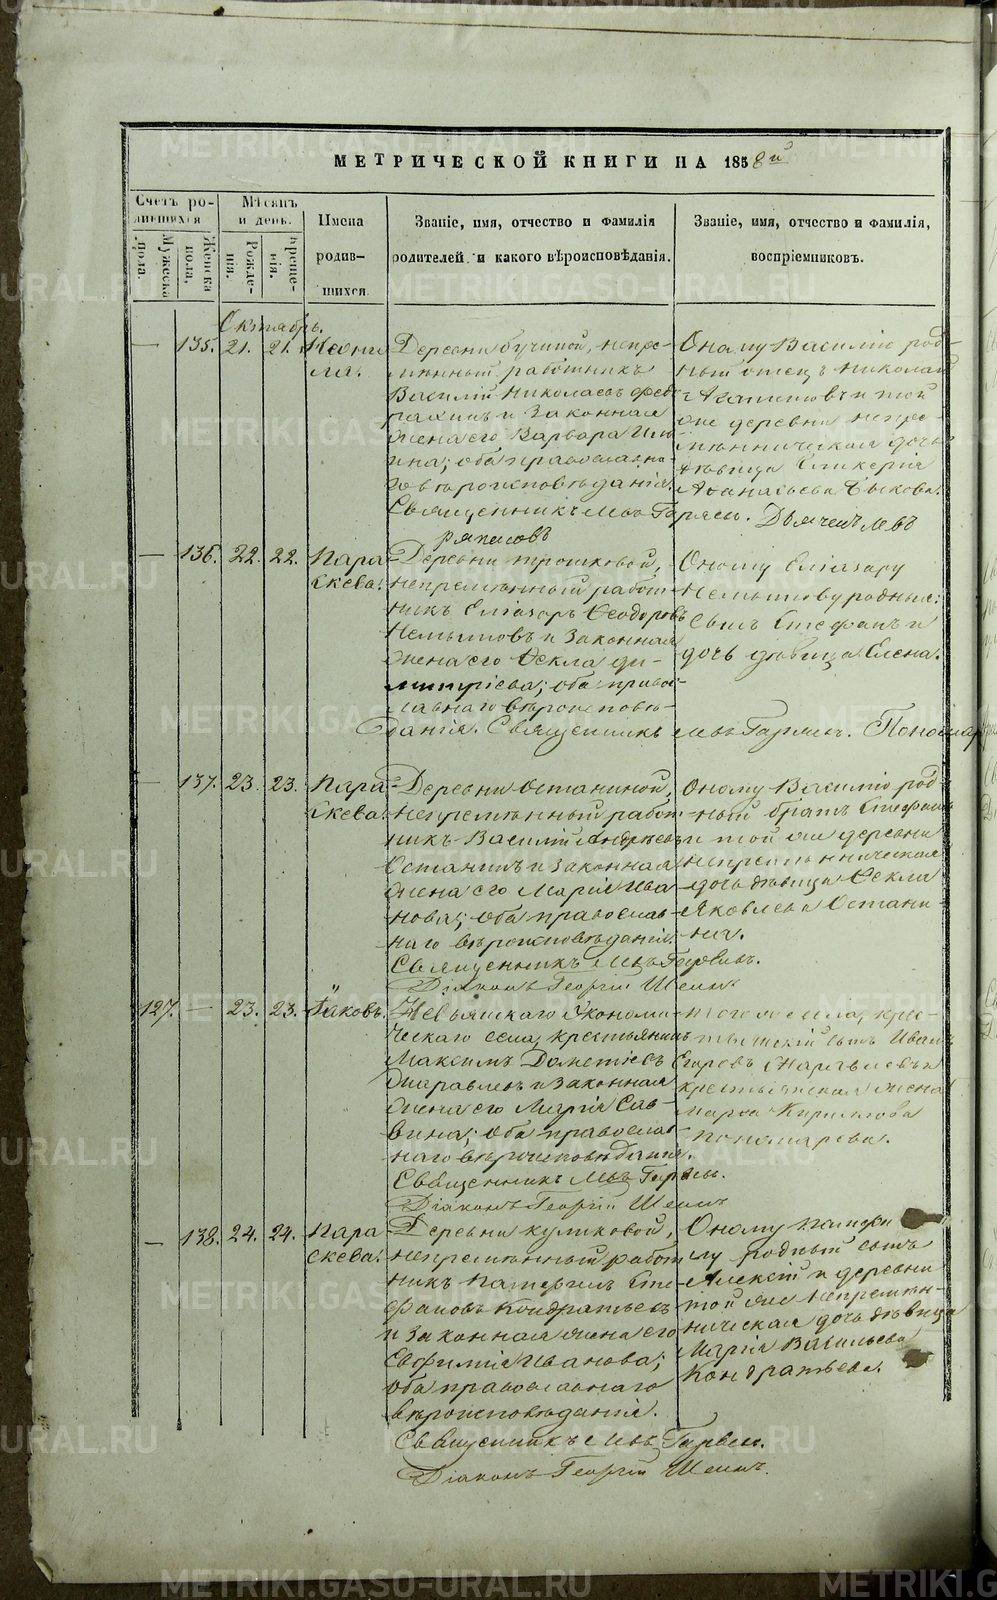 МЕТРИЧЕСКОЙ КНИГИ НА 1858й
Счетъ ро-
дившихся
Мужеска пола.
Женска пола,
Мѣсяцъ
и день.
Рожде-
нія.
Креще-
нія.
Имена
родив-
шихся
Званіе, имя, отчество и фамилія
родителей и какого вѣроисповѣданія.
Званіе, имя, отчество и фамилія,
воспріемниковъ.
Октябрь.
— 135. 21. 21.
Деревни Бучиной, непре-
мѣнный работникъ
Василій Николаевъ
и законная
жена его Варвара Иль-
ина; оба православна-
го вѣроисповѣданія.
Оному Василію род-
ный отецъ Николай
и той
же деревни непре-
мѣнническая дочь
дѣвица Гликерія
Аѳанасьева Быкова.
Священникъ Левъ Гаряевъ. Дьячекъ Левъ
— 136. 22. 22. Пара
скева.
Деревни Трошковой,
непремѣнный работ-
никъ Еліазаръ Ѳеодоровъ
Немытовъ и законная
жена его Ѳекла Ди-
митріева; оба право-
славнаго вѣроисповѣ-
данія. Священникъ Левъ Гаряевъ. Пономар
Оному Еліазару
Немытову родные:
сынъ Стефанъ и
дочь дѣвица Елена.
— 137. 23. 23. Пара
скева.
Деревни Останиной,
непремѣнный работ-
никъ Василій Андреевъ
Останинъ и законная
жена его Марія Ива
нова; оба православ-
наго вѣроисповѣданія.
Священникъ Левъ Гаряевъ.
Діаконъ Георгій
Оному Василію род-
ный братъ Стефанъ
и той же деревни
непремѣнническая
дочь дѣвица Ѳекла
Яковлева Остани-
на.
127. — 23. 23. Іаковъ.
Невьянскаго Экономи-
ческаго села, крестьянинъ
Максимъ Дометіевъ
Журавлевъ и законная
жена его Марія Сав-
вина; оба православ-
наго вѣроисповѣданія.
Священникъ Левъ Гаряевъ.
Діаконъ Георгій
Того же села, крес-
тьянскій сынъ Иванъ
Егоровъ Журавлевъ и
крестьянская жена
Марѳа Кирилова
Пономарева.
— 138. 24. 24. Пара
скева.
Деревни Куликовой,
непремѣнный работ
никъ Патермъ Сте-
фановъ Кондратьевъ
и законная жена его
Евфимія Иванова;
оба православнаго
вѣроисповѣданія.
Священникъ Левъ Гаряевъ.
Діаконъ Георгій
Оному
родный сынъ
Алексій и деревни
той же непремѣн-
ническая дочь дѣвица
Марія Васильева
Кондратьева.
METRIKI.GASO-URAL.RU